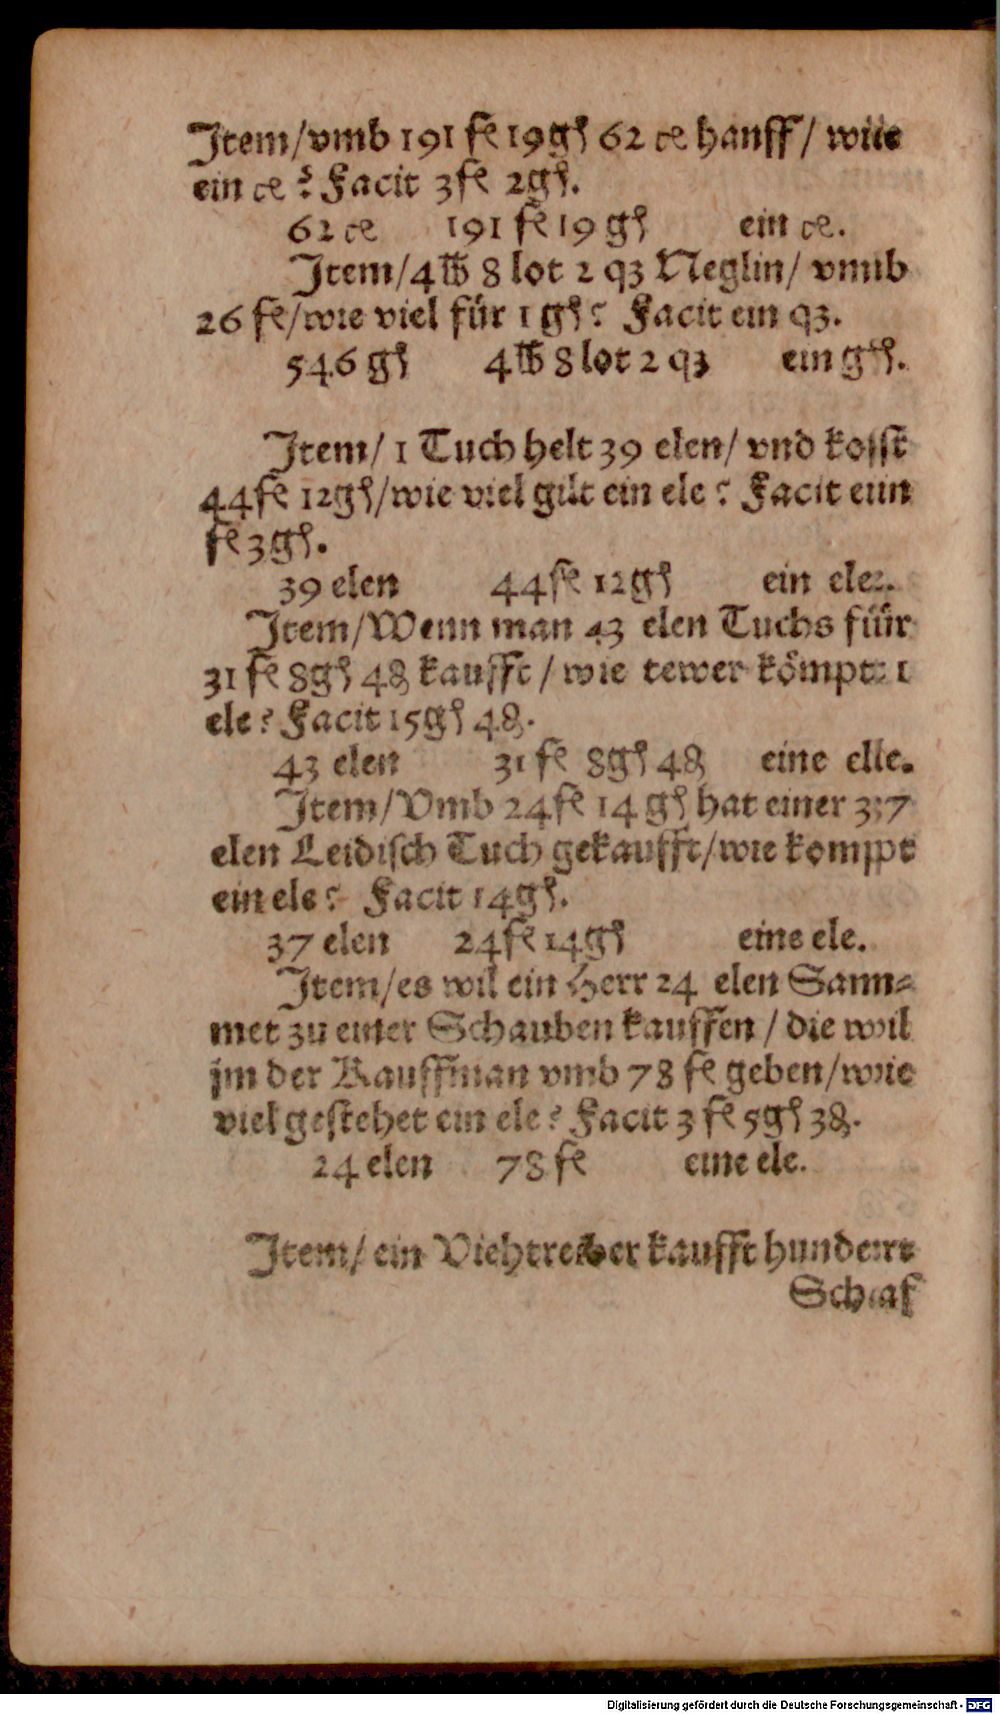 Item/vmb 191 fl 19gſ 62 ce hanff/ wiie
ein ce ? Facit 3fl 2gſ.
62 ce 191 fl 19 gſ ein ce.
Item/4 ℔ 8 lot 2 q3 Neglin/ vmb
26 fl/wie viel für 1 gſ? Facit ein q3.
546 gſ 4℔ 8 lot 2 q3 ein gſ.
Item/ 1 Tuch helt 39 elen/ vnd kosſt
44fl 12gſ/wie viel gilt ein ele? Facit ein
fl 3gſ.
39 elen 44fl 12gſ ein ele.
Item/Wenn man 43 elen Tuchs für
31 fl 8gſ 4₰ kaufft / wie tewer kömpt 1
ele? Facit 15gſ 4₰.
43 elen 31 fl 8gſ 4₰ eine elle.
Item/Vmb 24fl 14 gſ hat einer 37
elen Leidiſch Tuch gekaufft/wie kompt
ein ele? Facit 14gſ.
37 elen 24fl 14gſ eine ele.
Item/es wil ein Herr 24 elen Sam-
met zu einer Schauben kauffen / die wil
jm der Kauffman vmb 78 fl geben/wie
viel geſtehet ein ele? Facit 3 fl 5gſ 3₰.
24 elen 78 fl eine ele.
Item/ ein Viehtreiber kaufft hundert
Schaf
Digitalisierung gefördert durch die Deutsche Forschungsgemeinschaft - DFG